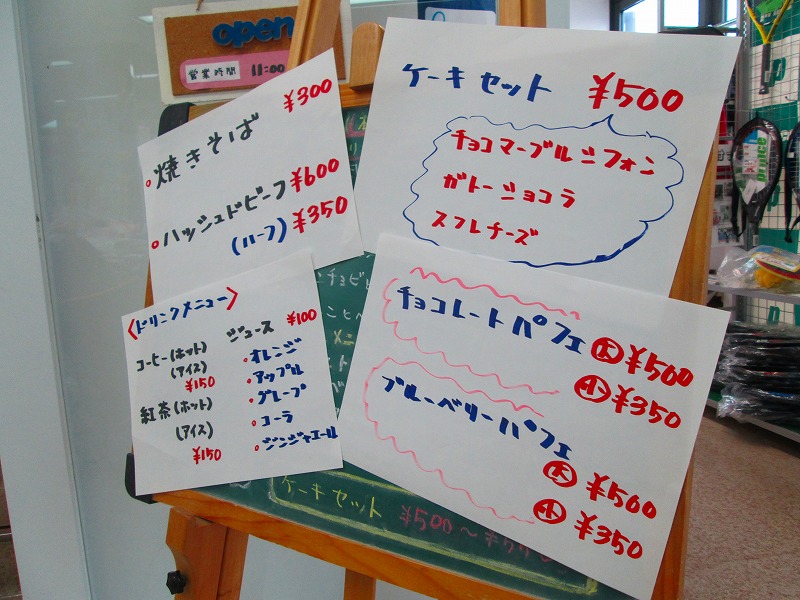 open
営業時間 11:00
焼きそば ¥300
ハッシュドビーフ ¥600
(ハーフ) ¥350
ケーキセット ¥500
チョコマーブルシフォン
ガトーショコラ
スフレチーズ
〈ドリンクメニュー〉
コーヒー(ホット)
(アイス)
¥150
紅茶(ホット)
(アイス)
¥150
ジュース ¥100
・オレンジ
・アップル
・グレープ
・コーラ
・ジンジャエール
チョコレートパフェ 大 ¥500
小 ¥350
ブルーベリーパフェ
大 ¥500
小 ¥350
ケーキセット ¥500〜
prince